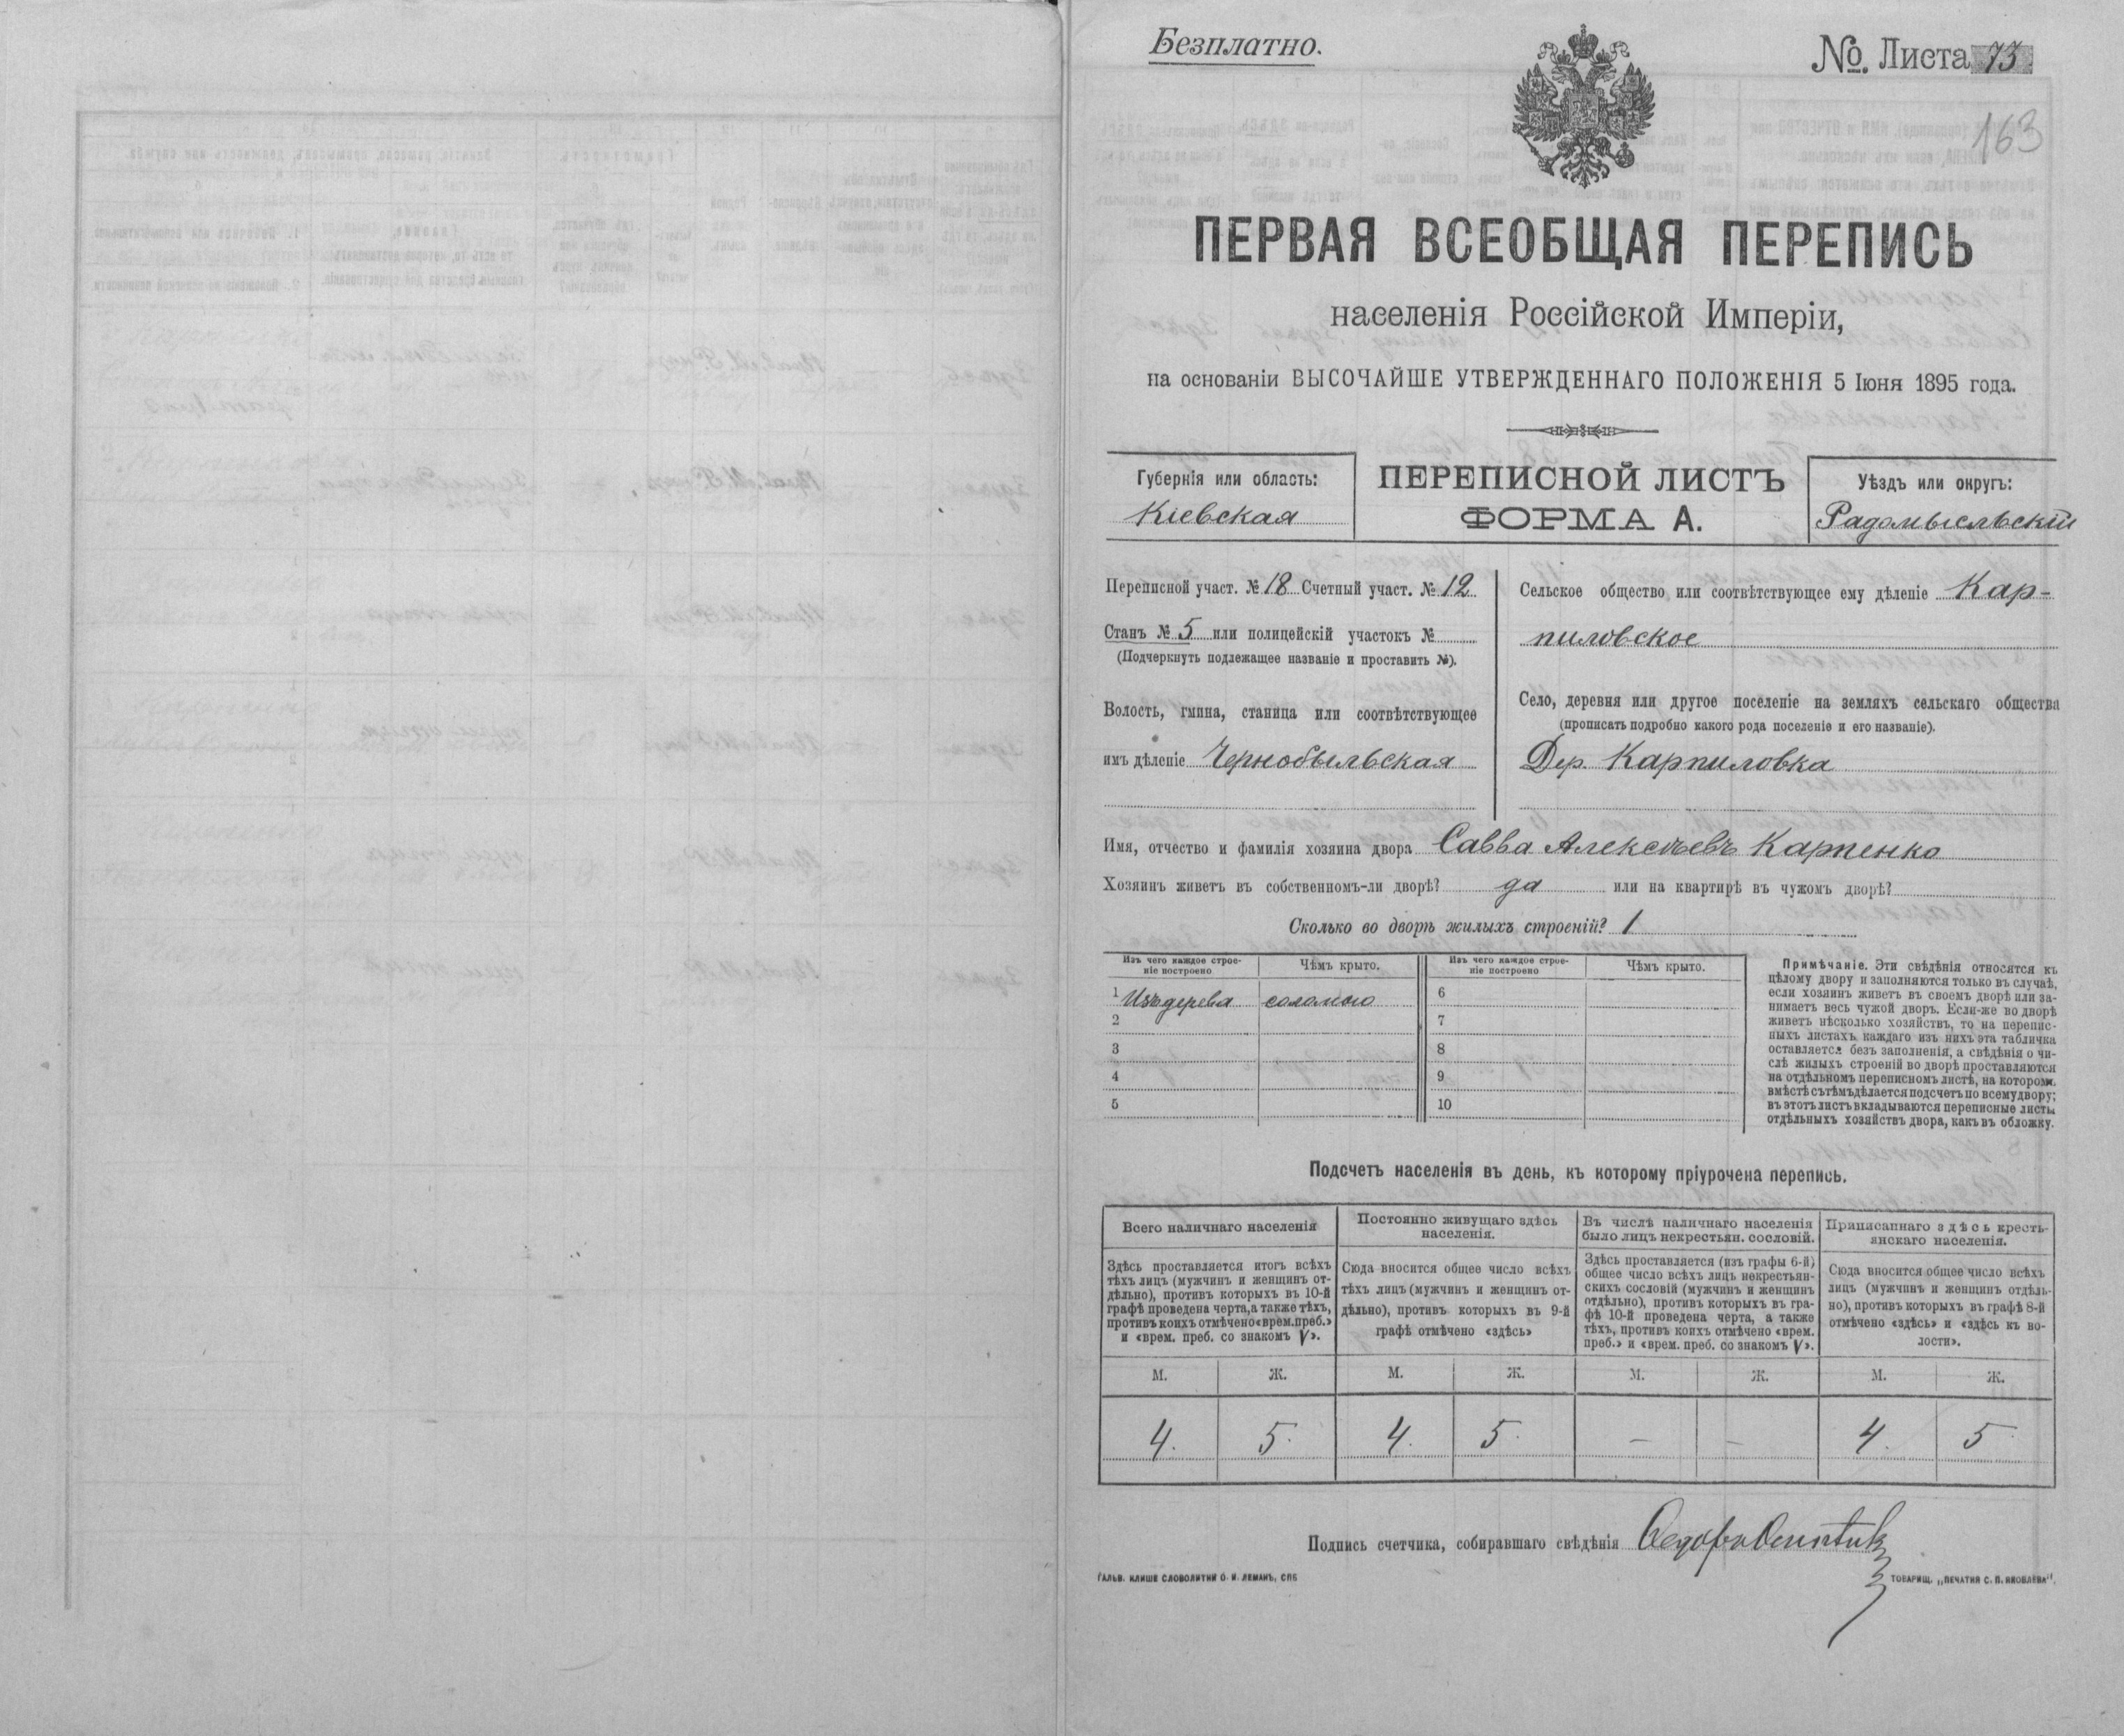 Безплатно.
№. Листа 73
163
ПЕРВАЯ ВСЕОБЩАЯ ПЕРЕПИСЬ
населенія Россійской Имперіи,
на основаніи ВЫСОЧАЙШЕ УТВЕРЖДЕННАГО ПОЛОЖЕНІЯ 5 Іюня 1895 года.
Губернія или область:
Кіевская
ПЕРЕПИСНОЙ ЛИСТЪ
ФОРМА А.
Уѣздъ или округъ:
Радомысльскій
Переписной участ. № 18 Счетный участ. № 12
Станъ № 5 или полицейскій участокъ №
(Подчеркнуть подлежащее названіе и проставить №).
Волость, гмина, станица или соотвѣтствующее
имъ дѣленіе Чернобыльская
Сельское общество или соотвѣтствующее ему дѣленіе Кар-
пиловское
Село, деревня или другое поселеніе на земляхъ сельскаго общества
(прописать подробно какого рода поселеніе и его названіе).
Дер. Карпиловка
Имя, отчество и фамилія хозяина двора Савва Алексѣевъ Карпенко
Хозяинъ живетъ въ собственномъ-ли дворѣ? да или на квартирѣ въ чужомъ дворѣ?
Сколько во дворѣ жилыхъ строеній? 1
Изъ чего каждое строе-
ніе построено
Чѣмъ крыто.
Изъ чего каждое строе-
ніе построено
Чѣмъ крыто.
1 Изъ дерева соломою
2
3
4
5
6
7
8
9
10
Примѣчаніе. Эти свѣдѣнія относятся къ
цѣлому двору и заполняются только въ случаѣ,
если хозяинъ живетъ въ своемъ дворѣ или за-
нимаетъ весь чужой дворъ. Если-же во дворѣ
живетъ нѣсколько хозяйствъ, то на перепис-
ныхъ листахъ каждаго изъ нихъ эта табличка
оставляется безъ заполненія, а свѣдѣнія о чи-
слѣ жилыхъ строеній во дворѣ проставляются
на отдѣльномъ переписномъ листѣ, на которомъ
вмѣстѣ съ тѣмъ дѣлается подсчетъ по всему двору;
въ этотъ листъ вкладываются переписные листы
отдѣльныхъ хозяйствъ двора, какъ въ обложку.
Подсчетъ населенія въ день, къ которому пріурочена перепись.
Всего наличнаго населенія
Здѣсь проставляется итогъ всѣхъ
тѣхъ лицъ (мужчинъ и женщинъ от-
дѣльно), противъ которыхъ въ 10-й
графѣ проведена черта, а также тѣхъ,
противъ коихъ отмѣчено «врем. преб.»
и «врем. преб. со знакомъ V».
Постоянно живущаго здѣсь
населенія.
Сюда вносится общее число всѣхъ
тѣхъ лицъ (мужчинъ и женщинъ от-
дѣльно), противъ которыхъ въ 9-й
графѣ отмѣчено «здѣсь»
Въ числѣ наличнаго населенія
было лицъ некрестьян. сословій.
Здѣсь проставляется (изъ графы 6-й)
общее число всѣхъ лицъ некрестьян-
скихъ сословій (мужчинъ и женщинъ
отдѣльно), противъ которыхъ въ гра-
фѣ 10-й проведена черта, а также
тѣхъ, противъ коихъ отмѣчено «врем.
преб.» и «врем. преб. со знакомъ V».
Приписаннаго здѣсь кресть-
янскаго населенія.
Сюда вносится общее число всѣхъ
лицъ (мужчинъ и женщинъ отдѣль-
но), противъ которыхъ въ графѣ 8-й
отмѣчено «здѣсь» и «здѣсь къ во-
лости».
М. Ж. М. Ж. М. Ж. М. Ж.
4. 5. 4. 5. — — 4. 5
Подпись счетчика, собиравшаго свѣдѣнія
ГАЛЬВ. КЛИШЕ СЛОВОЛИТНИ О. И. ЛЕМАНЪ, СПБ
ТОВАРИЩ. „ПЕЧАТНЯ С. П. ЯКОВЛЕВА".